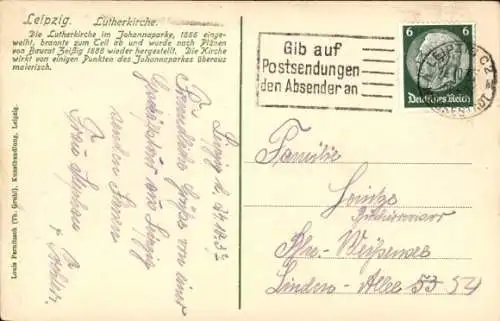 Leipzig. Lutherkirche.
Die Lutherkirche im Johannaparke, 1886 einge-
weiht, brannte zum Teil ab und wurde nach Plänen
von Baurat Zeißig 1888 wieder hergestellt. Die Kirche
wirkt von einigen Punkten des Johannaparkes überaus
malerisch.
Louis Pernitzsch (Th. Gruhl), Kunsthandlung, Leipzig.
Gib auf
Postsendungen
den Absender an
6 6
Deutsches Reich
LEIPZIG C2
Leipzig d.
Freundliche Grüße von einer
Geschäftstour aus Leipzig
senden Ihnen
Familie
Heintze
Bücherrevisor
Bln.-Weißensee
Linden-Allee 53 54